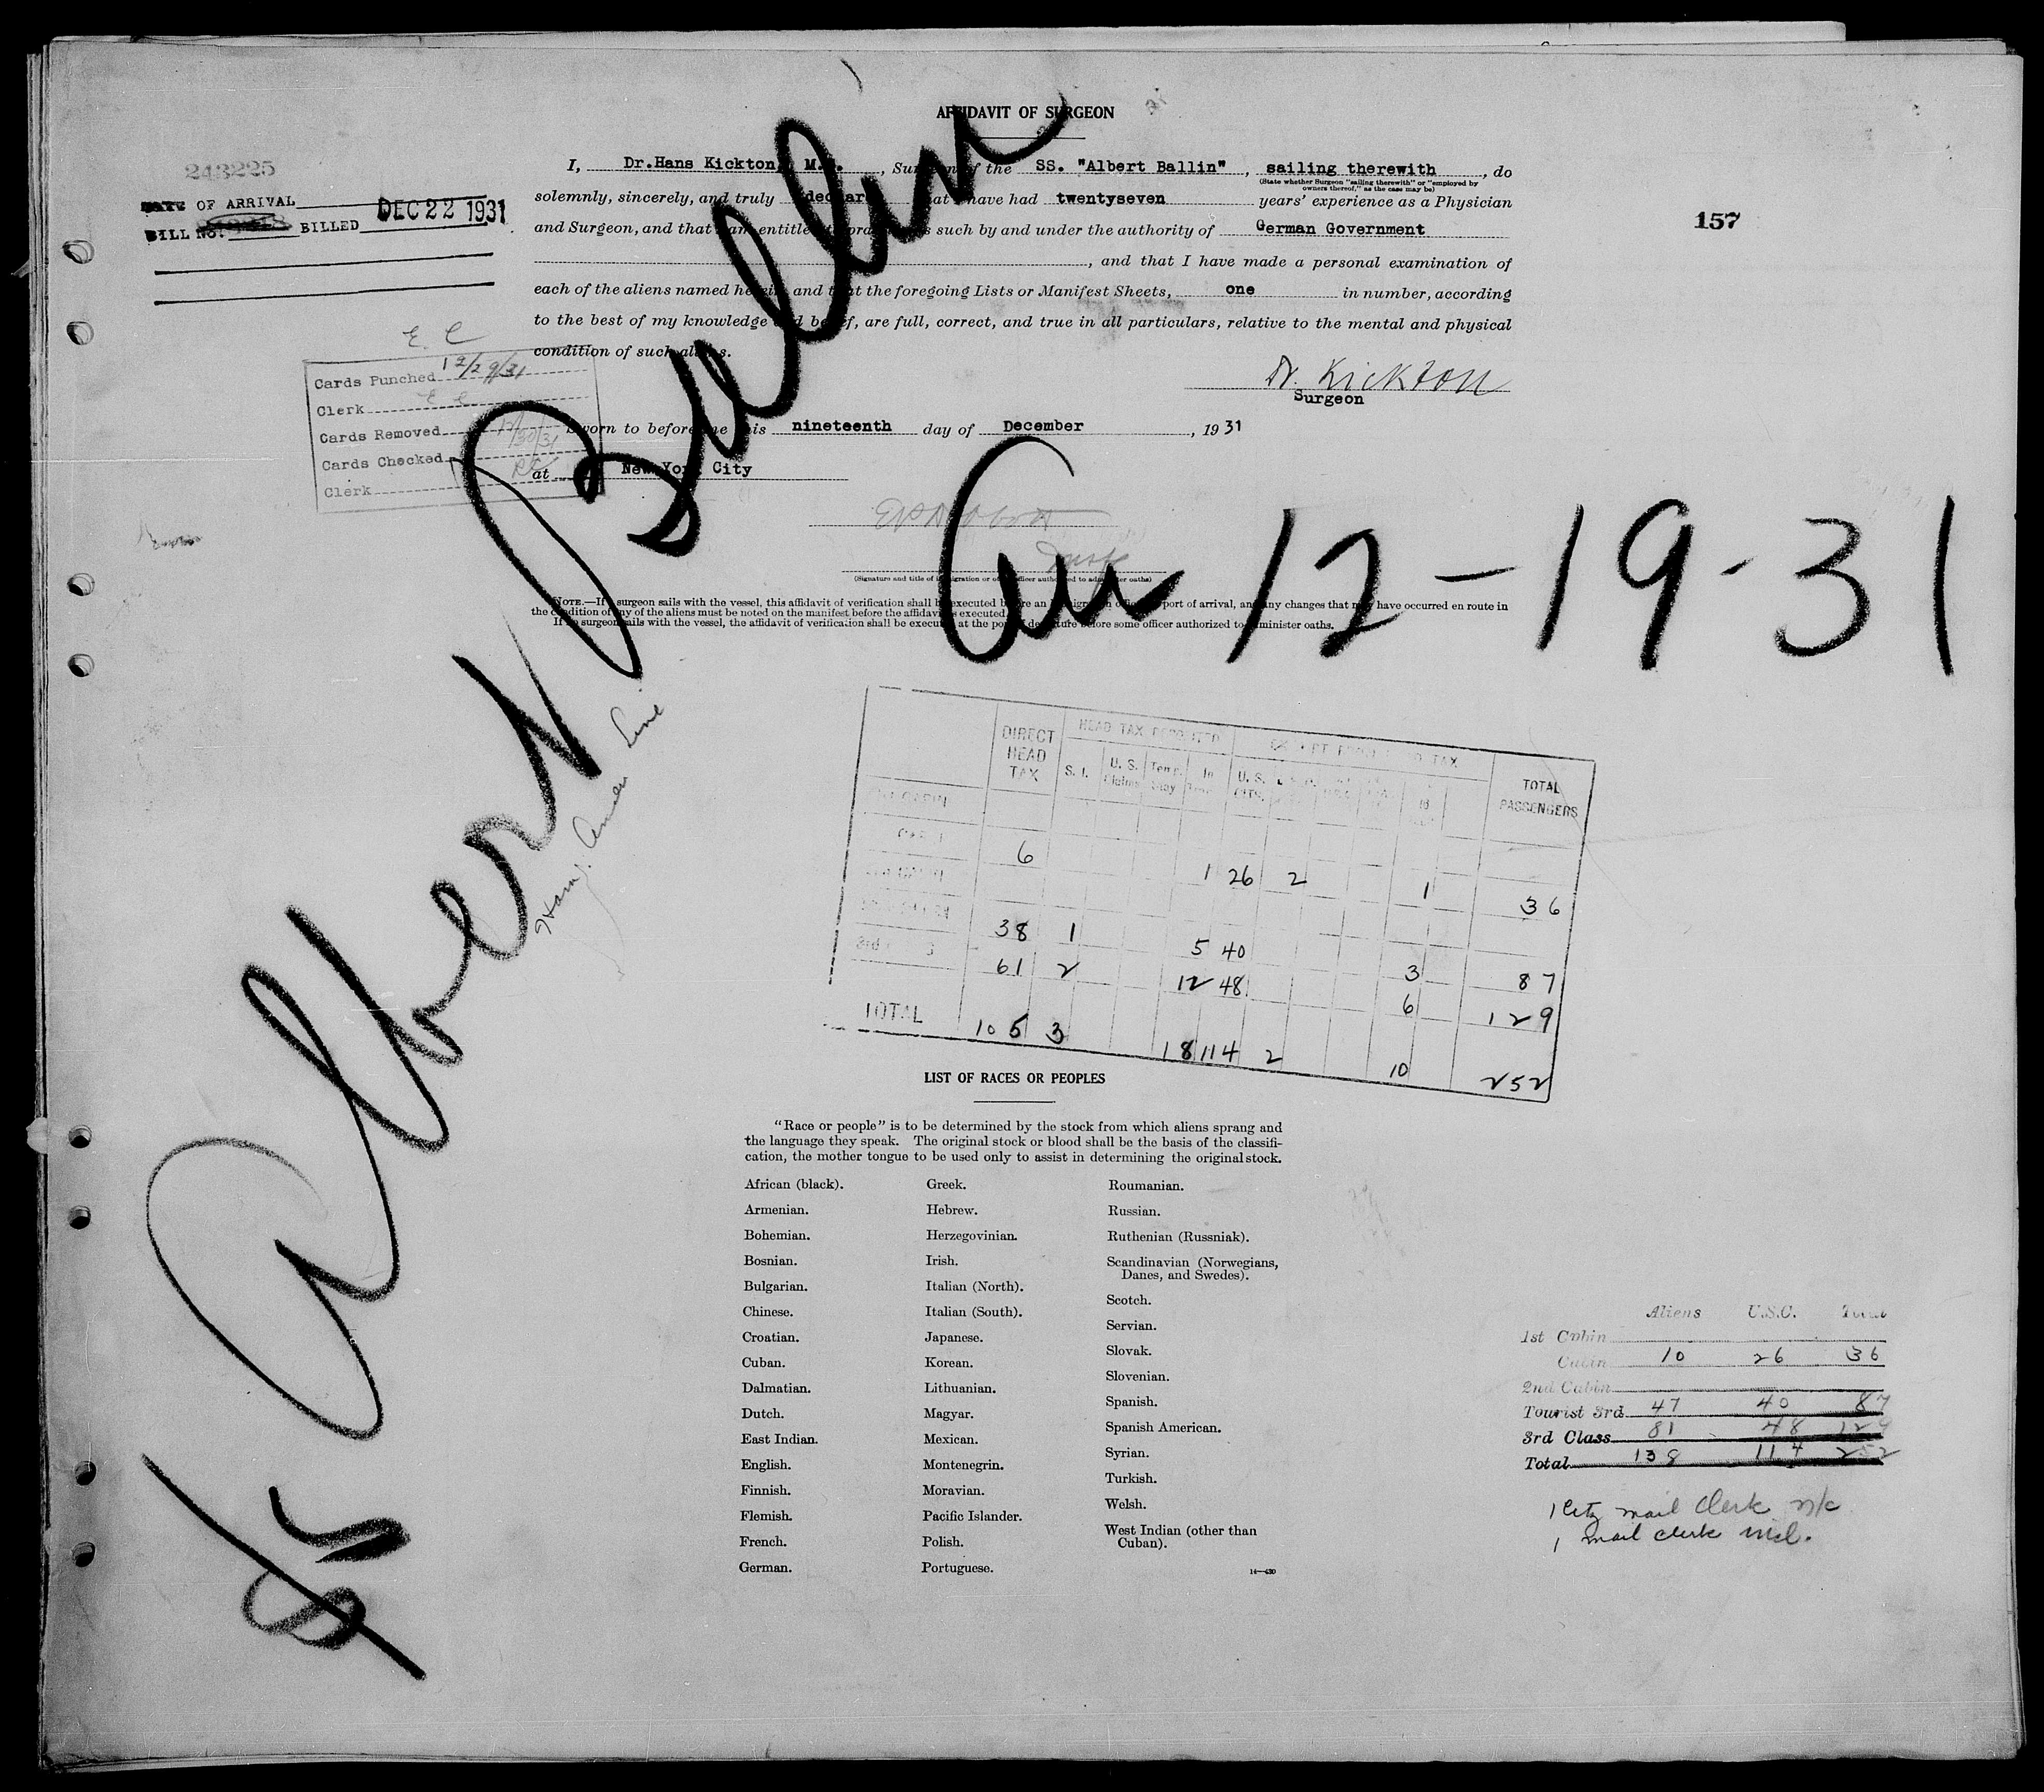 AFFIDAVIT OF SURGEON
I, Dr.Hans Kickton, M.D., Surgeon of the SS. "Albert Ballin", sailing therewith, do
(State whether Surgeon "sailing therewith" or "employed by
owners thereof," as the case may be)
solemnly, sincerely, and truly declare that I have had twentyseven years' experience as a Physician
and Surgeon, and that I am entitled to practice as such by and under the authority of German Government
, and that I have made a personal examination of
each of the aliens named herein and that the foregoing Lists or Manifest Sheets, one in number, according
to the best of my knowledge and belief, are full, correct, and true in all particulars, relative to the mental and physical
condition of such aliens.
Dr. Kickton
Surgeon
Sworn to before me this nineteenth day of December, 1931
at New York City
(Signature and title of immigration or other officer authorized to administer oaths)
NOTE.—If a surgeon sails with the vessel, this affidavit of verification shall be executed before an immigration officer at port of arrival, and any changes that may have occurred en route in
the condition of any of the aliens must be noted on the manifest before the affidavit is executed.
If no surgeon sails with the vessel, the affidavit of verification shall be executed at the port of departure before some officer authorized to administer oaths.
243225
DATE OF ARRIVAL
BILL NO. BILLED DEC 22 1931
157
E. C
Cards Punched 12/29/31
Clerk E C
Cards Removed 12/30/31
Cards Checked
Clerk
SS Albert Ballin
Hamg. Amer Line
Arr 12-19-31
DIRECT HEAD TAX HEAD TAX DEPOSITED EXEMPT FROM HEAD TAX TOTAL PASSENGERS
S. I. U. S. Temp. Stay In U. S. CITS.
6 1 26 2 1 36
38 1 5 40 3 87
3rd 61 2 12 48 6 129
TOTAL 105 3 18 114 2 10 252
LIST OF RACES OR PEOPLES
"Race or people" is to be determined by the stock from which aliens sprang and
the language they speak. The original stock or blood shall be the basis of the classifi-
cation, the mother tongue to be used only to assist in determining the original stock.
African (black).
Armenian.
Bohemian.
Bosnian.
Bulgarian.
Chinese.
Croatian.
Cuban.
Dalmatian.
Dutch.
East Indian.
English.
Finnish.
Flemish.
French.
German.
Greek.
Hebrew.
Herzegovinian.
Irish.
Italian (North).
Italian (South).
Japanese.
Korean.
Lithuanian.
Magyar.
Mexican.
Montenegrin.
Moravian.
Pacific Islander.
Polish.
Portuguese.
Roumanian.
Russian.
Ruthenian (Russniak).
Scandinavian (Norwegians,
Danes, and Swedes).
Scotch.
Servian.
Slovak.
Slovenian.
Spanish.
Spanish American.
Syrian.
Turkish.
Welsh.
West Indian (other than
Cuban).
14—430
Aliens U.S.C. Total
1st Cabin
Cabin 10 26 36
2nd Cabin
Tourist 3rd 47 40 87
3rd Class 81 48 129
Total 138 114 252
1 Citz mail Clerk n/c
1 mail clerk incl.